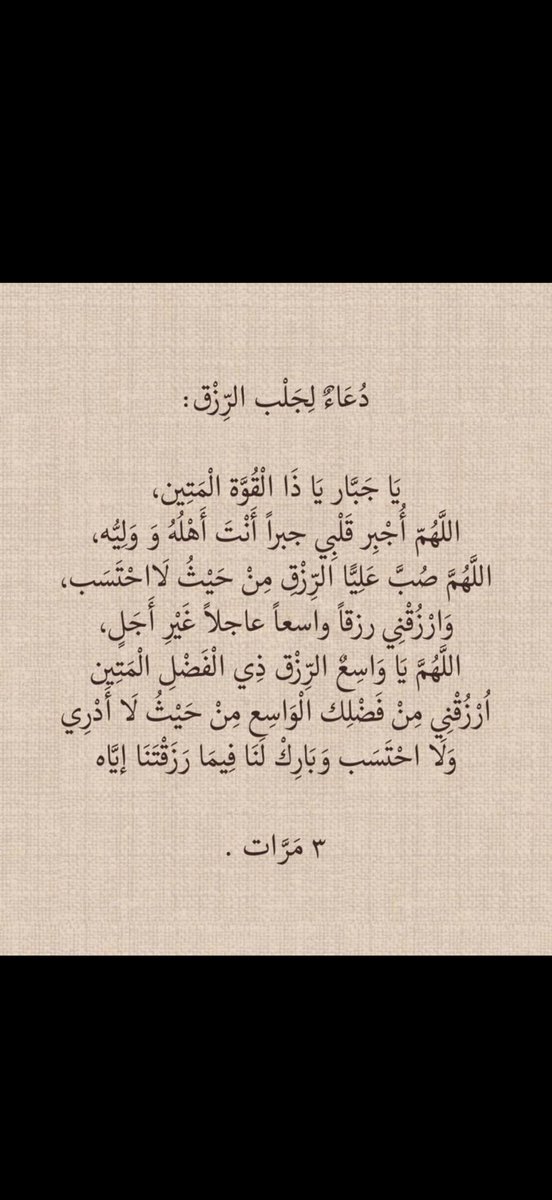 دُعَاءٌ لِجَلْب الرِّزْق:
يَا جَبَّار يَا ذَا الْقُوَّة الْمَتِين،
اللَّهُمّ أُجْبِر قَلْبِي جبراً أَنْتَ أَهْلُهُ وَ وَلِيُّه،
اللَّهُمَّ صُبَّ عَلِيًّا الرِّزْقِ مِنْ حَيْثُ لَااحْتَسَب،
وَارْزُقْنِي رزقاً واسعاً عاجلاً غَيْرِ أَجَلٍ،
اللَّهُمَّ يَا وَاسِعُ الرِّزْق ذِي الْفَضْلِ الْمَتِين
اُرْزُقْنِي مِنْ فَضْلِك الْوَاسِع مِنْ حَيْثُ لَا أَدْرِي
وَلَا احْتَسَب وَبَارِكْ لَنَا فِيمَا رَزَقْتَنَا إيَّاه
٣ مَرَّات .